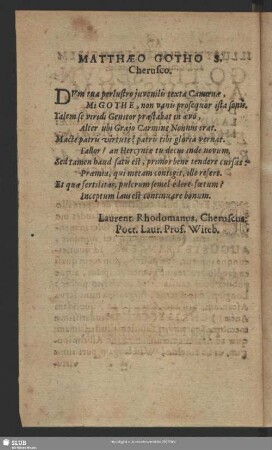 MATTHÆO GOTHO S.
Cherusco.
DVm tua perlustro juvenilis texta Camœnæ,
Mi GOTHE, non vanis prosequor ista sonis.
Talem se viridi Genitor præstabat in ævo,
Alter ubi Grajo Carmine Nonnus erat.
Macte patris virtute! patris tibi gloria vernat.
Fallor? an Hercyniæ tu decus inde novum,
Sed tamen haud satis est, primor bene tendere cursus:
Præmia, qui metam contigit, ille refert.
Et quæ fertilitas, pulcrum semel edere fœtum?
Inceptum laus est continuare bonum.
Laurent. Rhodomanus, Cheruscus,
Poët. Laur. Prof. Witeb.
SLUB